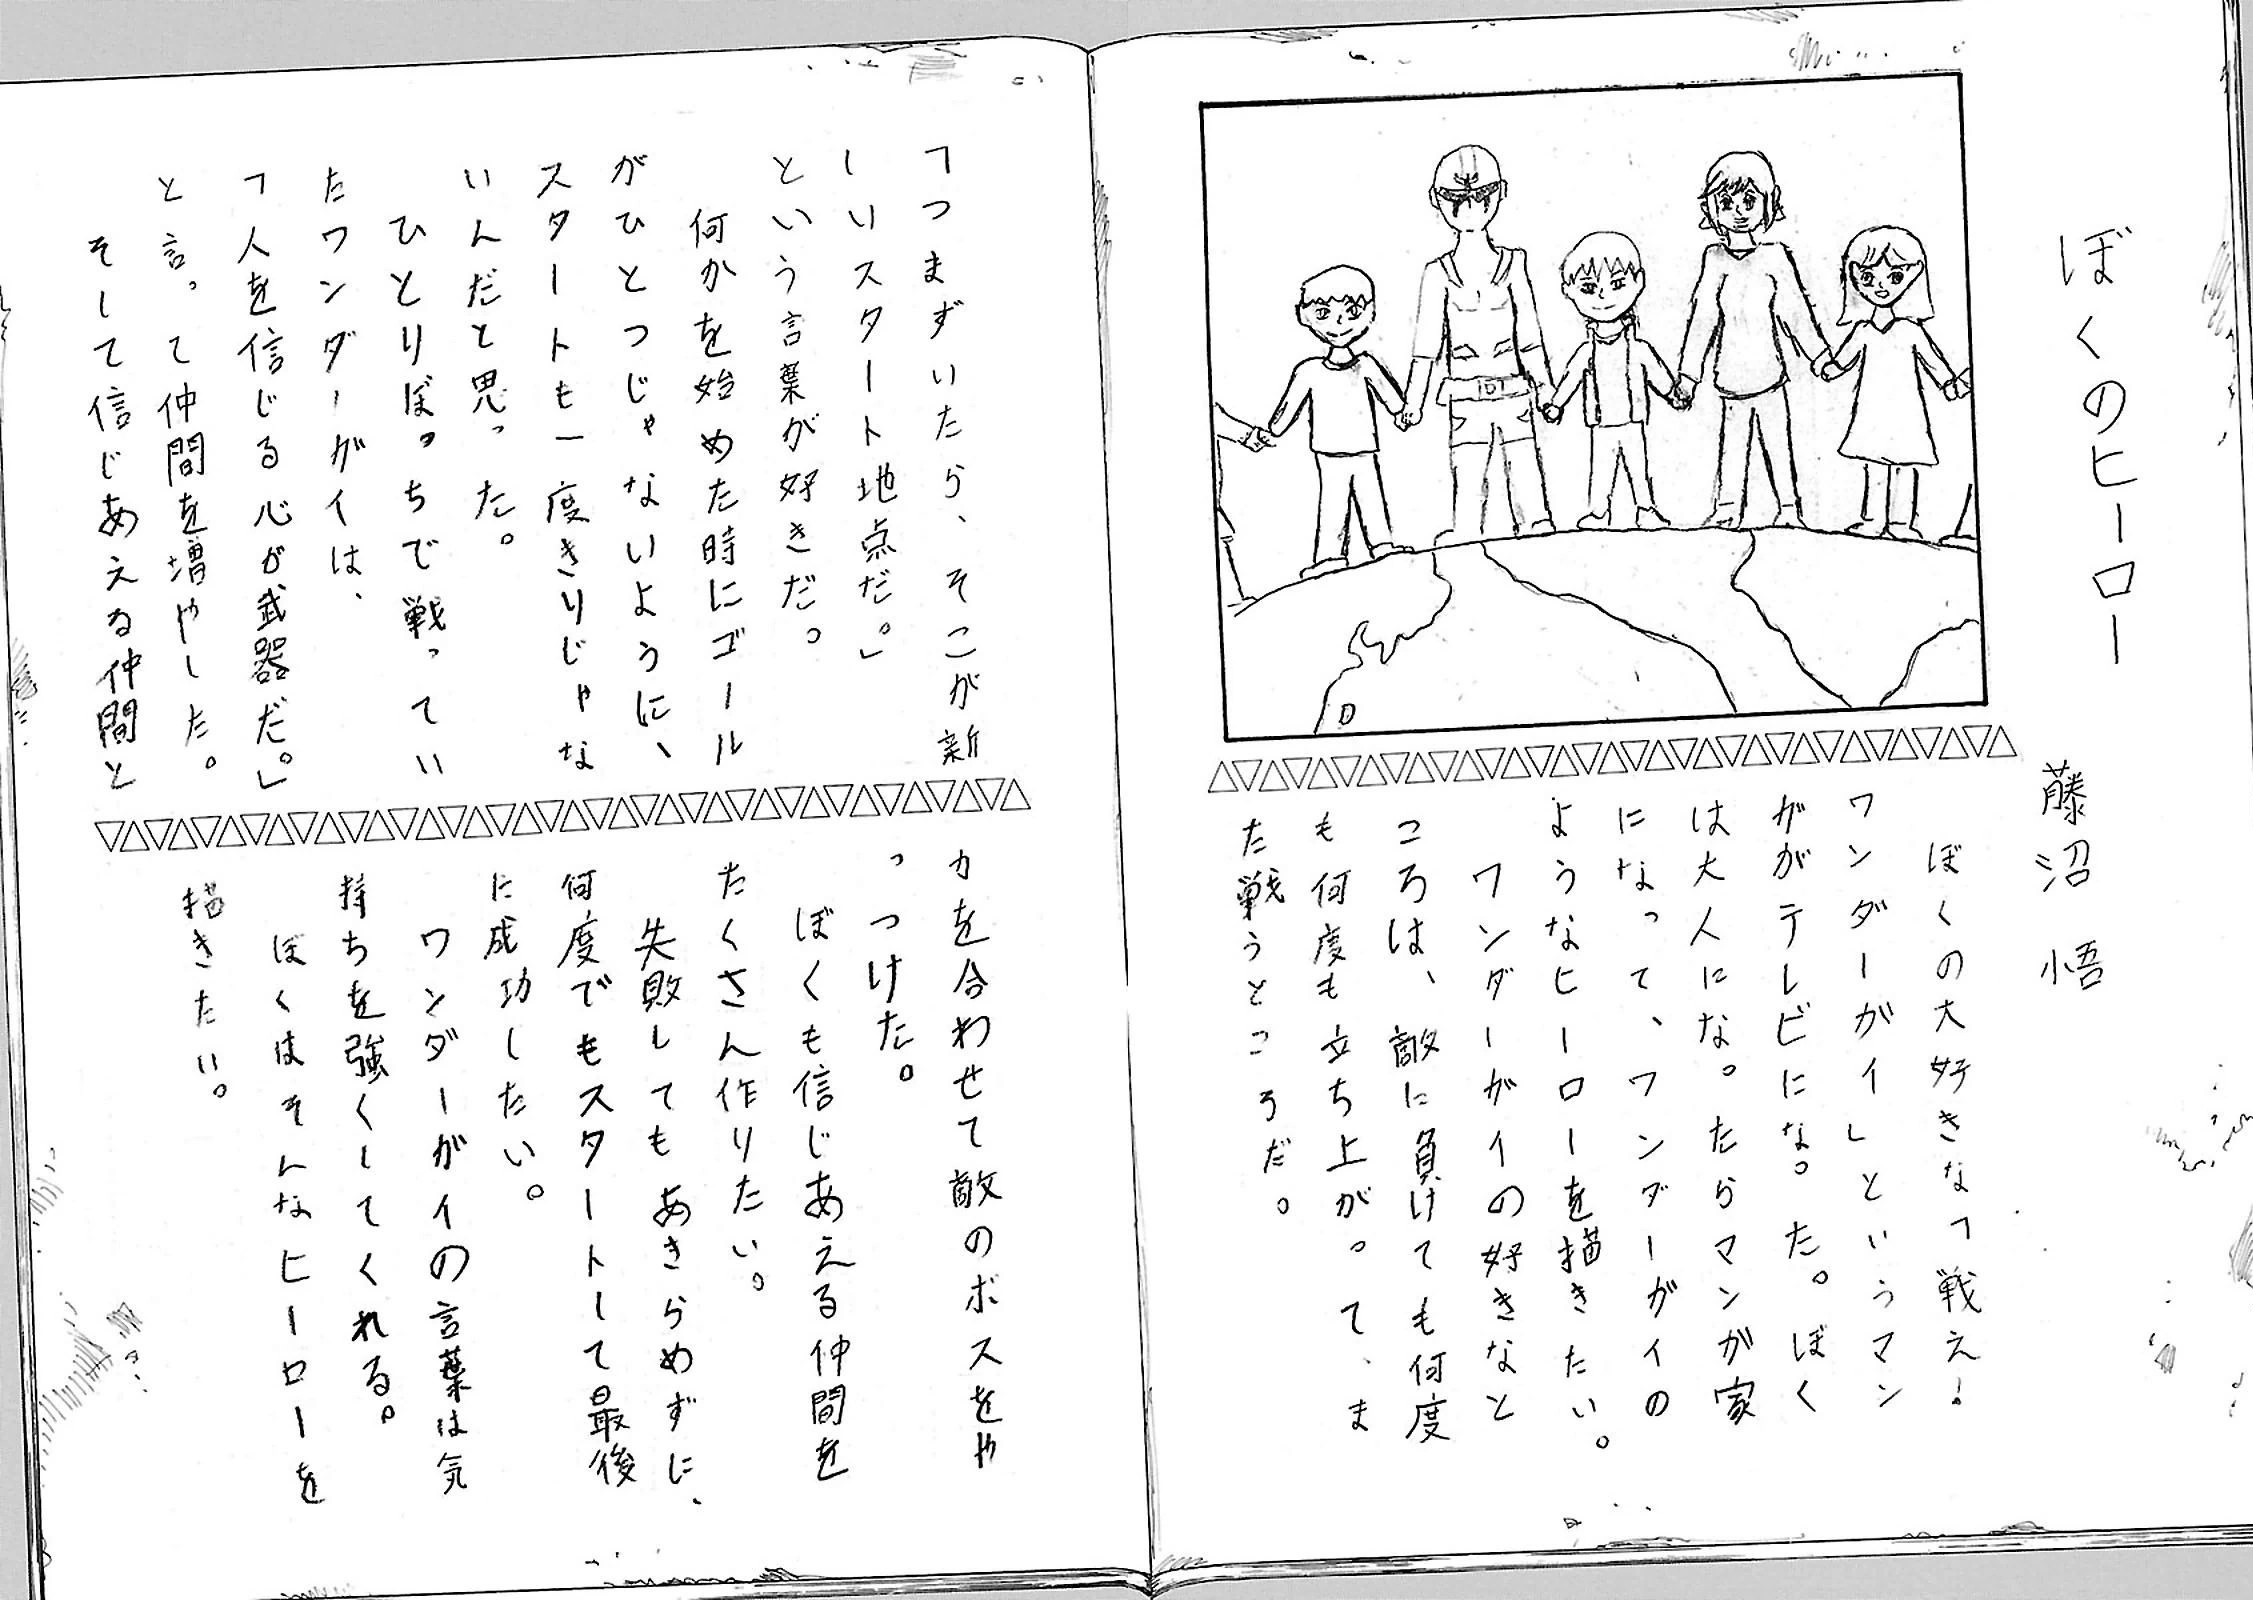 ぼくのヒーロー
藤沼 悟
ぼくの大好きな「戦え!
ワンダーガイ」というマン
ガがテレビになった。ぼく
は大人になったらマンガ家
になって、ワンダーガイの
ようなヒーローを描きたい。
ワンダーガイの好きなと
ころは、敵に負けても何度
も何度も立ち上がって、ま
た戦うところだ。
「つまずいたら、そこが新
しいスタート地点だ。」
という言葉が好きだ。
何かを始めた時にゴール
がひとつじゃないように、
スタートも一度きりじゃな
いんだと思った。
ひとりぼっちで戦ってい
たワンダーガイは、
「人を信じる心が武器だ。」
と言って仲間を増やした。
そして信じあえる仲間と
力を合わせて敵のボスをや
っつけた。
ぼくも信じあえる仲間を
たくさん作りたい。
失敗してもあきらめずに、
何度でもスタートして最後
に成功したい。
ワンダーガイの言葉は気
持ちを強くしてくれる。
ぼくはそんなヒーローを
描きたい。